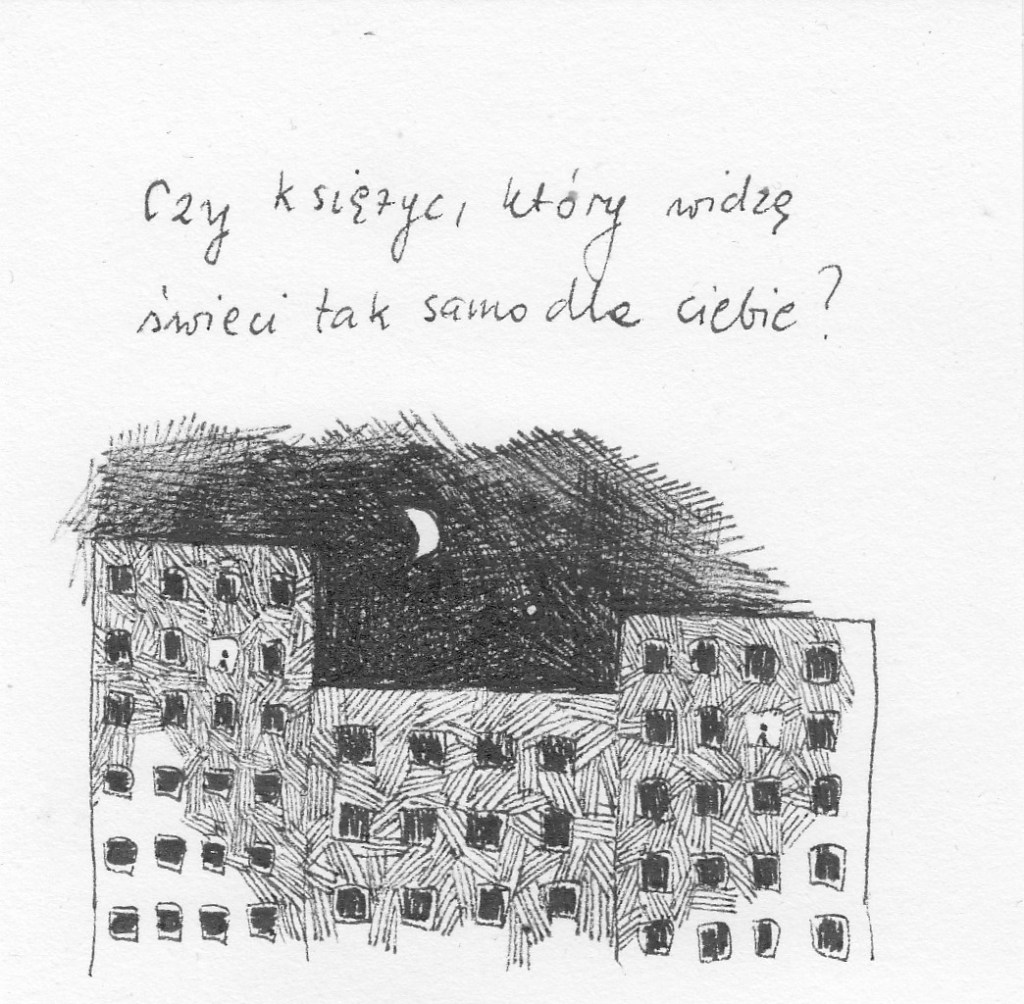 Czy księżyc, który widzę
świeci tak samo dla ciebie?